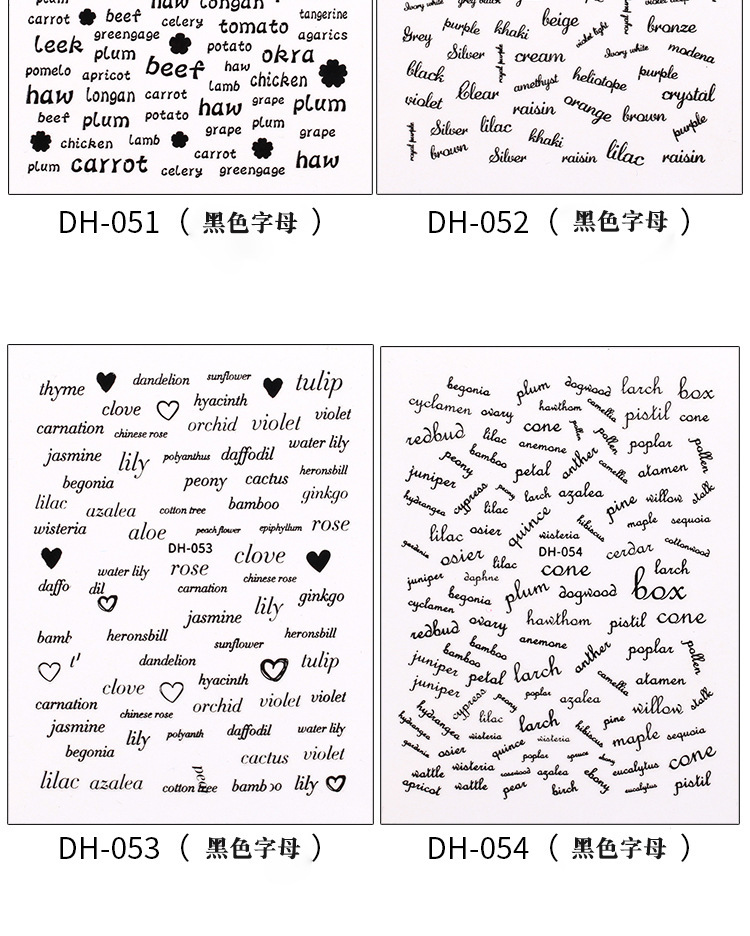 haw longan
carrot beef celery tomato tangerine
greengage agarics
leek plum potato okra
pomelo apricot beef haw chicken
lamb
haw longan carrot haw grape plum
beef plum potato
grape plum grape
chicken lamb
carrot
plum carrot celery greengage haw
Grey purple khaki beige bronze
Silver cream Ivory white modena
black amethyst heliotope purple
violet Clear crystal
raisin orange brown
Silver lilac khaki purple
royal purple brown Silver raisin lilac raisin
DH-051 ( 黑色字母 )
DH-052 ( 黑色字母 )
thyme dandelion sunflower tulip
clove hyacinth
carnation chinese rose orchid violet violet
water lily
jasmine lily polyanthus daffodil
heronsbill
begonia peony cactus
ginkgo
lilac azalea cotton tree bamboo
wisteria aloe peach flower epiphyllum rose
DH-053 clove
water lily rose chinese rose
daffo dil carnation ginkgo
lily
jasmine
bamb heronsbill sunflower heronsbill
dandelion tulip
hyacinth
clove
carnation chinese rose orchid violet violet
jasmine lily polyanth daffodil water lily
begonia cactus violet
lilac azalea cotton ree bamb lily
begonia plum dogwood larch box
cyclamen ovary hawthom camellia pistil cone
redbud lilac cone pollen pollen poplar
peony bamboo anemone pollen
juniper petal anther camellia atamen
hydrangea cypress peony larch azalea pine willow stalk
lilac quince hibiscus maple sequoia
lilac osier wisteria
gardenia osier lilac DH-054 cerdar cottonwood
juniper daphne cone larch
begonia plum dogwood box
cyclamen
redbud ovary hawthom pistil cone
bamboo anemone
bamboo anther poplar pollen
juniper petal larch camellia atamen
juniper cypress peony poplar azalea willow stalk
hydrangea lilac larch pine
hydrangea wisteria hibiscus maple sequoia
gardenia osier quince wisteria
poplar cone
wattle wisteria azalea ebony eucalyptus
apricot wattle pear birch eucalyptus pistil
DH-053 ( 黑色字母 )
DH-054 ( 黑色字母 )